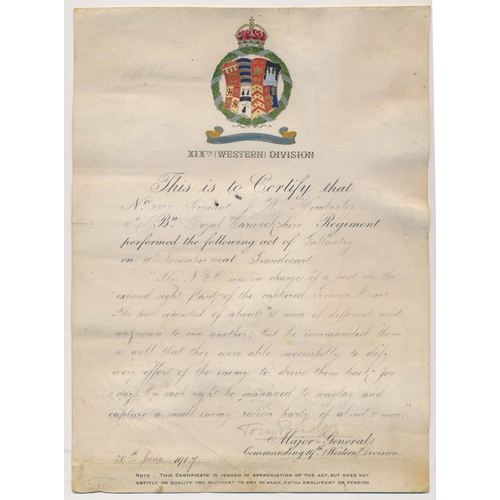 XIXTH (WESTERN) DIVISION
This is to Certify that
No Sergeant W.
10th Bn Royal Warwickshire Regiment
performed the following act of Gallantry
on November at Grandcourt
"This N.C.O. was in charge of a post on the
exposed right flank of the captured German lines
The post consisted of about 15 men of different units
unknown to one another, but he commanded them
so well that they were able successfully to defy
every effort of the enemy to drive them back for
days. On each night he managed to waylay and
capture a small enemy ration party of about men.
Major-General:
20th June 1917 Commanding 19th (Western) Division.
NOTE - THIS CERTIFICATE IS ISSUED IN APPRECIATION OF THE ACT, BUT DOES NOT
ENTITLE OR QUALIFY THE RECIPIENT TO ANY REWARD, EXTRA EMOLUMENT OR PENSION.